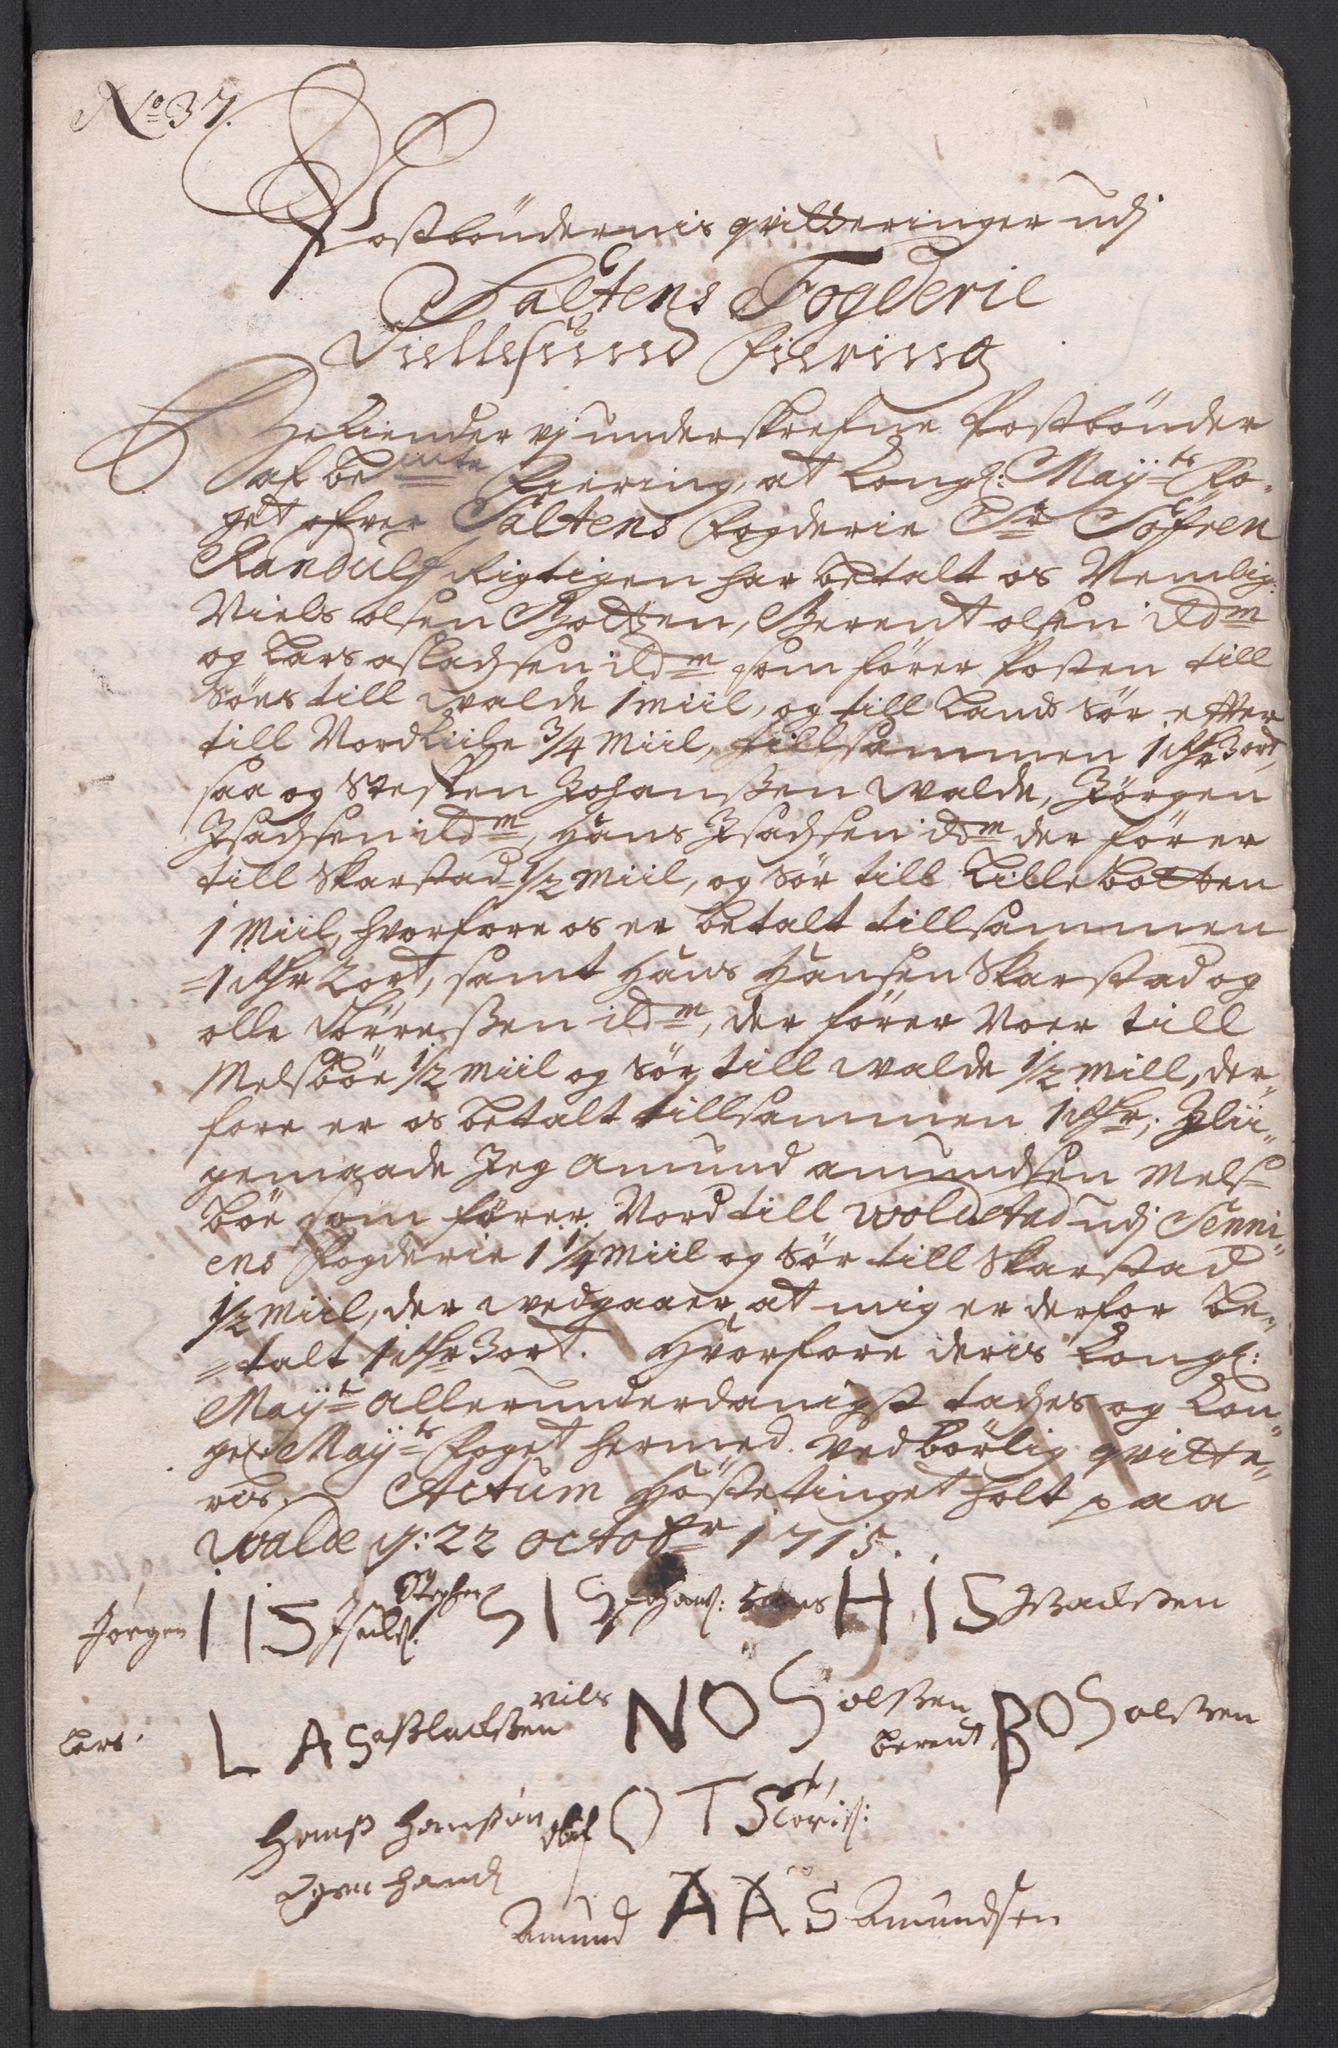 No 37.
Postböndernis qvitteringer udj
Saltens Fogderie
Tiellesund Fiering
Bekiender vj underskrefne Postbönder
af bemte Fiering, at Kongl: Mayts Fo-
get ofver Saltens Fogderie Sr Söfren
Randulf Rigtigen har betalt os Nemblig:
Niels olsen Botten, Berent olsen ildm
og Lars aslachsen ildm som förer Posten till
Söes till walde 1 miil, og till Land Sör efter
till Nordliche 3/4 Miil, tillsammen 1 rdr 3 ort,
saa og Steffen Johanßen walde, Jörgen
Isachsen ildm, Hans Isachsen ildm der förer
till Skarstad 1/2 Miil, og Sör till Lille botten
1 Miil, hvorfore os er betalt tillsammen
1 rdr 2 ort, samt Hans Hansen Skarstad og
olle Törreßen ildm, der förer Noer till
Melsböe 1/2 miil og Sör till walde 1/2 mill, der-
fore er os betalt tillsammen 1 rdr; Jlii-
gemaade Jeg Amund amundsen Mels-
böe som förer Nord till woldstad udj Senni-
ens Fogderie 1 1/4 Miil og Sör till Skarstad
1/2 Miil, der wedgaaer, at mig er derfor be-
talt 1 rdr 3 ort. Hvorfore deris Kongl:
Mayt allerunderdanigst tackes og Kon-
gl. Mayts Foget hermed vedbörlig qvitte-
ris. Actum Höstetinget holt paa
Walde d: 22 octobr 1715.
Jörgen IIS Isachs: Stephen SIS Johans: Hans HIS Isachsen
Lars LAS aßlachßen nils NOS olßen berent BOS olßen
Hanß Hanßön Oluf OTS Töris:
Egen hand
Amund AAS Amundsen